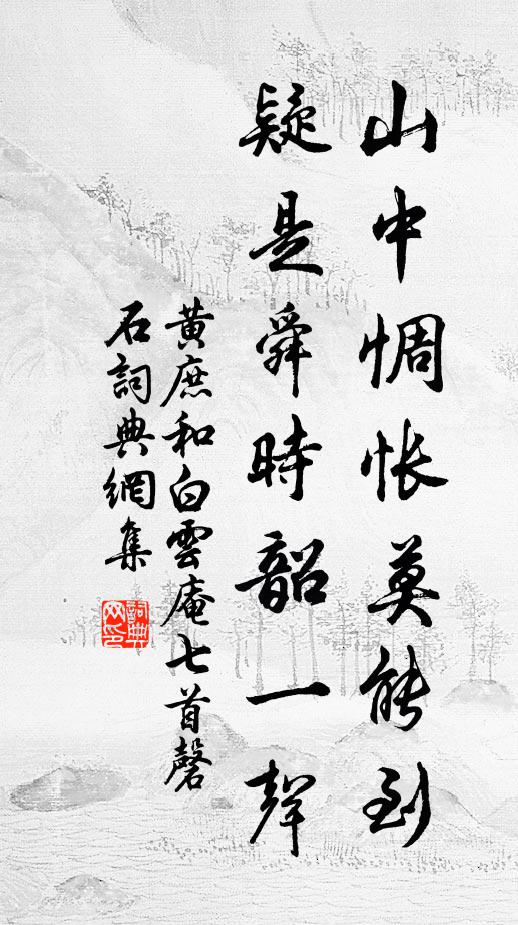 山中惆怅莫能到
疑是舜時韶一聲
黃庶和白雲庵七首磬
石詞典網集
詞典網印